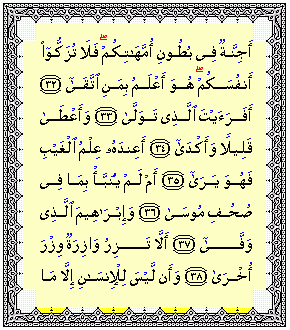 أَجِنَّةٌ فِى بُطُونِ أُمَّهَـٰتِكُمْ ۖ فَلَا تُزَكُّوٓا۟
أَنفُسَكُمْ ۖ هُوَ أَعْلَمُ بِمَنِ ٱتَّقَىٰٓ ﴿٣٢﴾
أَفَرَءَيْتَ ٱلَّذِى تَوَلَّىٰ ﴿٣٣﴾ وَأَعْطَىٰ
قَلِيلًا وَأَكْدَىٰٓ ﴿٣٤﴾ أَعِندَهُۥ عِلْمُ ٱلْغَيْبِ
فَهُوَ يَرَىٰٓ ﴿٣٥﴾ أَمْ لَمْ يُنَبَّأْ بِمَا فِى
صُحُفِ مُوسَىٰ ﴿٣٦﴾ وَإِبْرَٰهِيمَ ٱلَّذِى
وَفَّىٰٓ ﴿٣٧﴾ أَلَّا تَزِرُ وَازِرَةٌ وِزْرَ
أُخْرَىٰ ﴿٣٨﴾ وَأَن لَّيْسَ لِلْإِنسَـٰنِ إِلَّا مَا